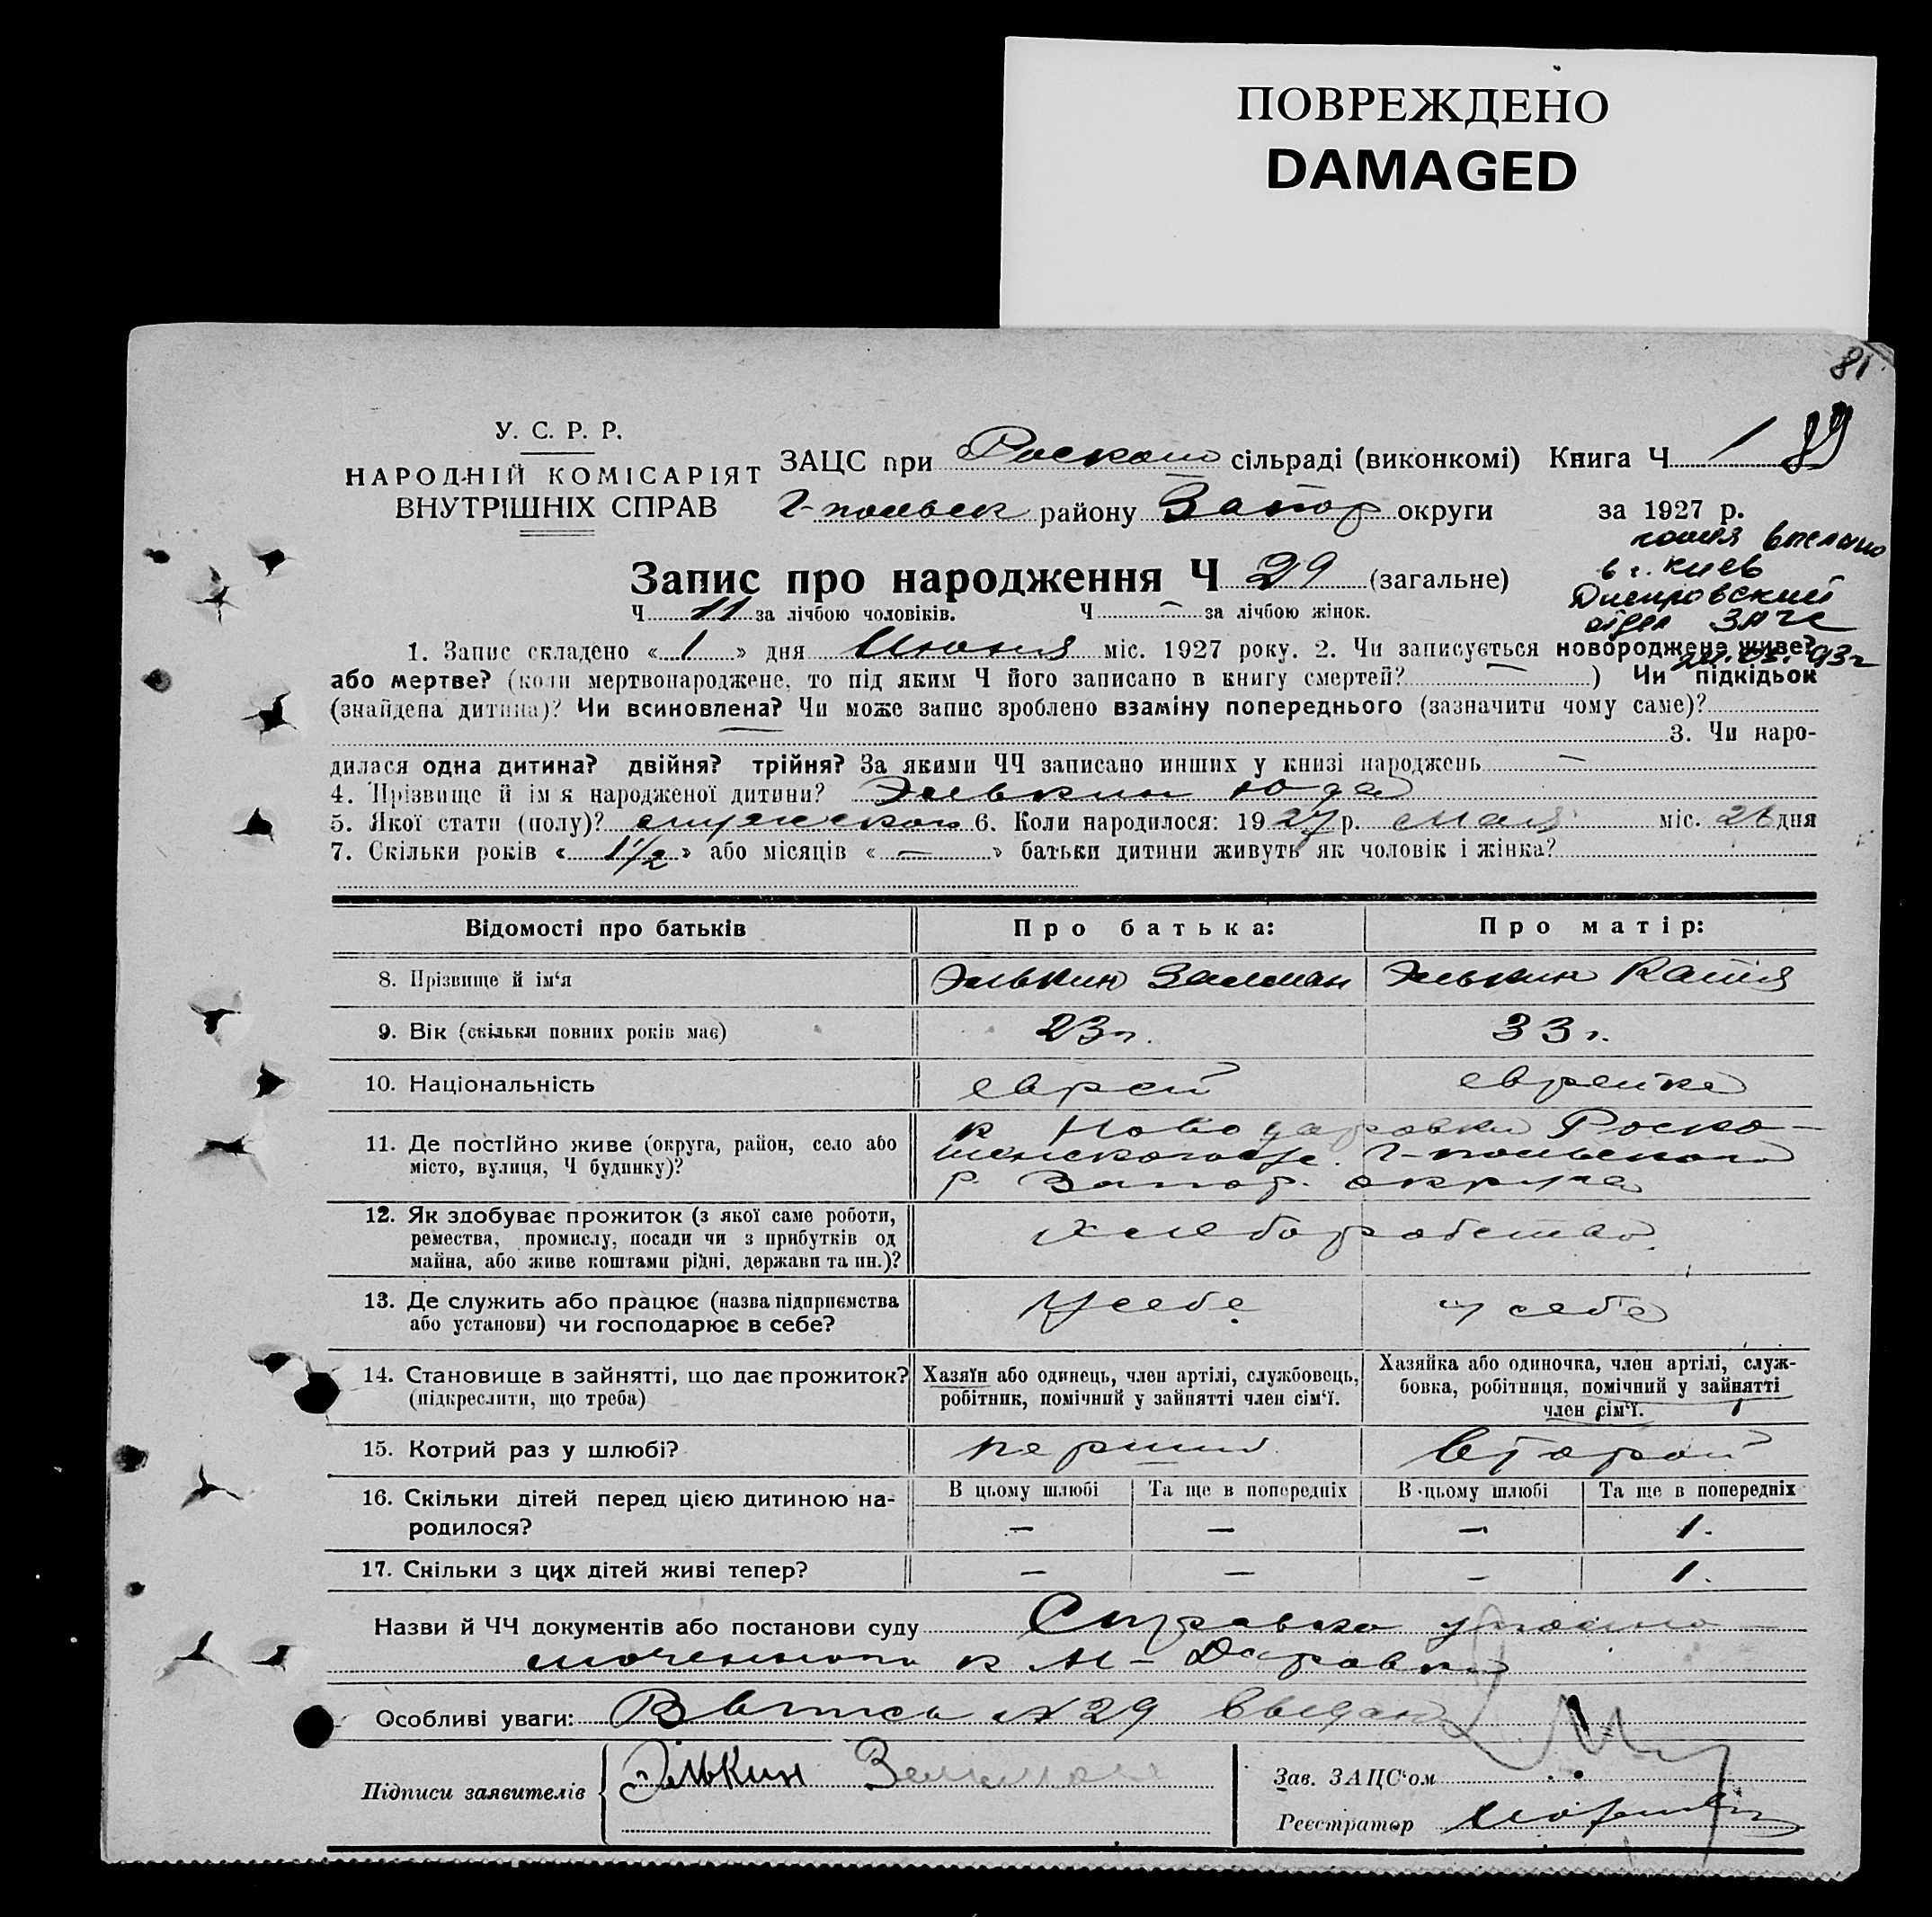 ПОВРЕЖДЕНО
DAMAGED
81
У. С. Р. Р.
НАРОДНІЙ КОМІСАРІЯТ
ВНУТРІШНІХ СПРАВ
ЗАЦС при Роскош сільраді (виконкомі) Книга Ч 1
Г-польск району Запор округи за 1927 р.
копия выслана
в г. Киев
Днепровский
отдел ЗАГС
93г
Запис про народження Ч 29 (загальне)
Ч 11 за лічбою чоловіків. Ч — за лічбою жінок.
1. Запис складено « 1 » дня Июня міс. 1927 року. 2. Чи записується новороджене живе?
або мертве? (коли мертвонароджене, то під яким Ч його записано в книгу смертей? — ) Чи підкідьок
(знайдена дитина)? Чи всиновлена? Чи може запис зроблено взаміну попереднього (зазначити чому саме)?
3. Чи наро-
дилася одна дитина? двійня? трійня? За якими ЧЧ записано инших у книзі народжень —
4. Прізвище й ім'я народженої дитини? Элькин Юда
5. Якої стати (полу)? мужеского 6. Коли народилося: 1927 р. мая міс. 26 дня
7. Скільки років « 1 1/2 » або місяців « — » батьки дитини живуть як чоловік і жінка?
Відомості про батьків Про батька: Про матір:
8. Прізвище й ім‘я Элькин Залман Элькин Катя
9. Вік (скільки повних років має) 23 г. 33 г.
10. Національність еврей еврейка
11. Де постійно живе (округа, район, село або
місто, вулиця, Ч будинку)?
к Новодаровки Роско-
шенского с/с. Г-польского
р. Запор. округа
12. Як здобуває прожиток (з якої саме роботи,
ремества, промислу, посади чи з прибутків од
майна, або живе коштами рідні, держави та ин.)?
хлеборобство
13. Де служить або працює (назва підприємства
або установи) чи господарює в себе?
У себе у себе
14. Становище в зайнятті, що дає прожиток?
(підкреслити, що треба)
Хазяїн або одинець, член артілі, службовець,
робітник, помічний у зайнятті член сім‘ї.
Хазяйка або одиночка, член артілі, служ-
бовка, робітниця, помічний у зайнятті
член сім‘ї.
15. Котрий раз у шлюбі? перший второй
16. Скільки дітей перед цією дитиною на-
родилося?
В цьому шлюбі Та ще в попередніх В цьому шлюбі Та ще в попередніх
— — — 1.
17. Скільки з цих дітей живі тепер? — — — 1.
Назви й ЧЧ документів або постанови суду Справка уполно-
моченного к Н-Даровки
Особливі уваги: Выпись №29 выдана
Підписи заявителів Элькин Залман
Зав. ЗАЦС‘ом
Реєстратор